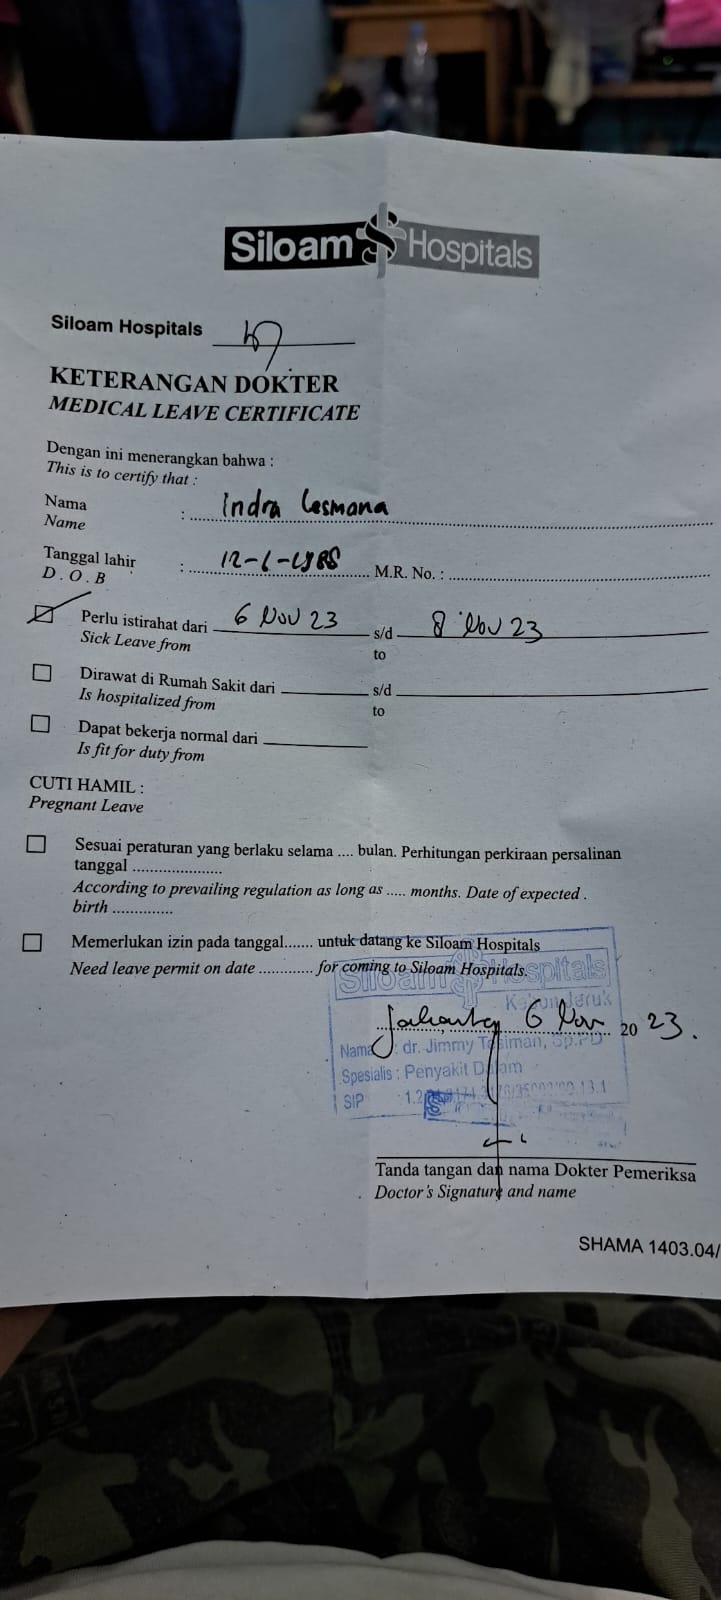 Siloam Hospitals
Siloam Hospitals
KETERANGAN DOKTER
MEDICAL LEAVE CERTIFICATE
Dengan ini menerangkan bahwa :
This is to certify that :
Nama : Indra Lesmana
Name
Tanggal lahir : M.R. No. :
D . O . B
Perlu istirahat dari 6 Nov 23 s/d 8 Nov 23
Sick Leave from to
Dirawat di Rumah Sakit dari s/d
Is hospitalized from to
Dapat bekerja normal dari
Is fit for duty from
CUTI HAMIL :
Pregnant Leave
Sesuai peraturan yang berlaku selama .... bulan. Perhitungan perkiraan persalinan
tanggal .....................
According to prevailing regulation as long as ..... months. Date of expected .
birth ..............
Memerlukan izin pada tanggal....... untuk datang ke Siloam Hospitals
Need leave permit on date .............for coming to Siloam Hospitals.
Siloam Hospitals
Kebon Jeruk
Jakarta 6 Nov 2023.
Nama : dr. Jimmy Sp.PD
Spesialis : Penyakit Dalam
SIP
Tanda tangan dan nama Dokter Pemeriksa
Doctor's Signature and name
SHAMA 1403.04/